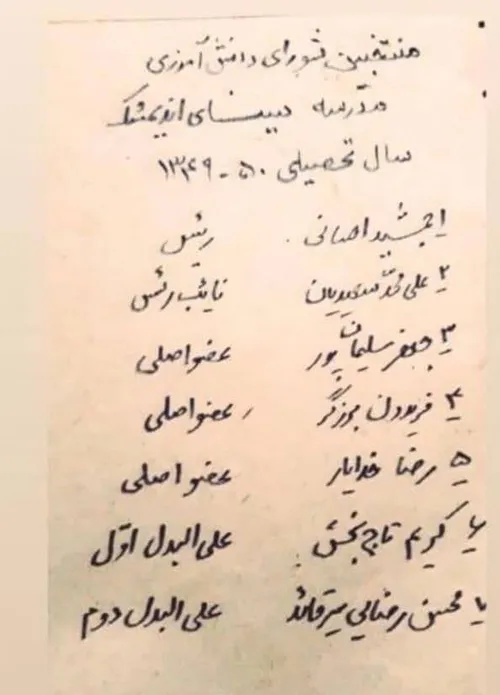 منتخبین شورای دانش آموزی
مدرسه سینای اندیمشک
سال تحصیلی ۵۰ - ۱۳۴۹
۱ جمشید احسانی . رئیس
۲ علی محمد سعیدیان نائب رئیس
۳ جعفر سلیمان پور عضو اصلی
۴ فریدون برزگر عضو اصلی
۵ رضا خدایار عضو اصلی
۶ کریم تاج بخش علی البدل اوّل
۷ محسن رضایی میرقائد علی البدل دوم